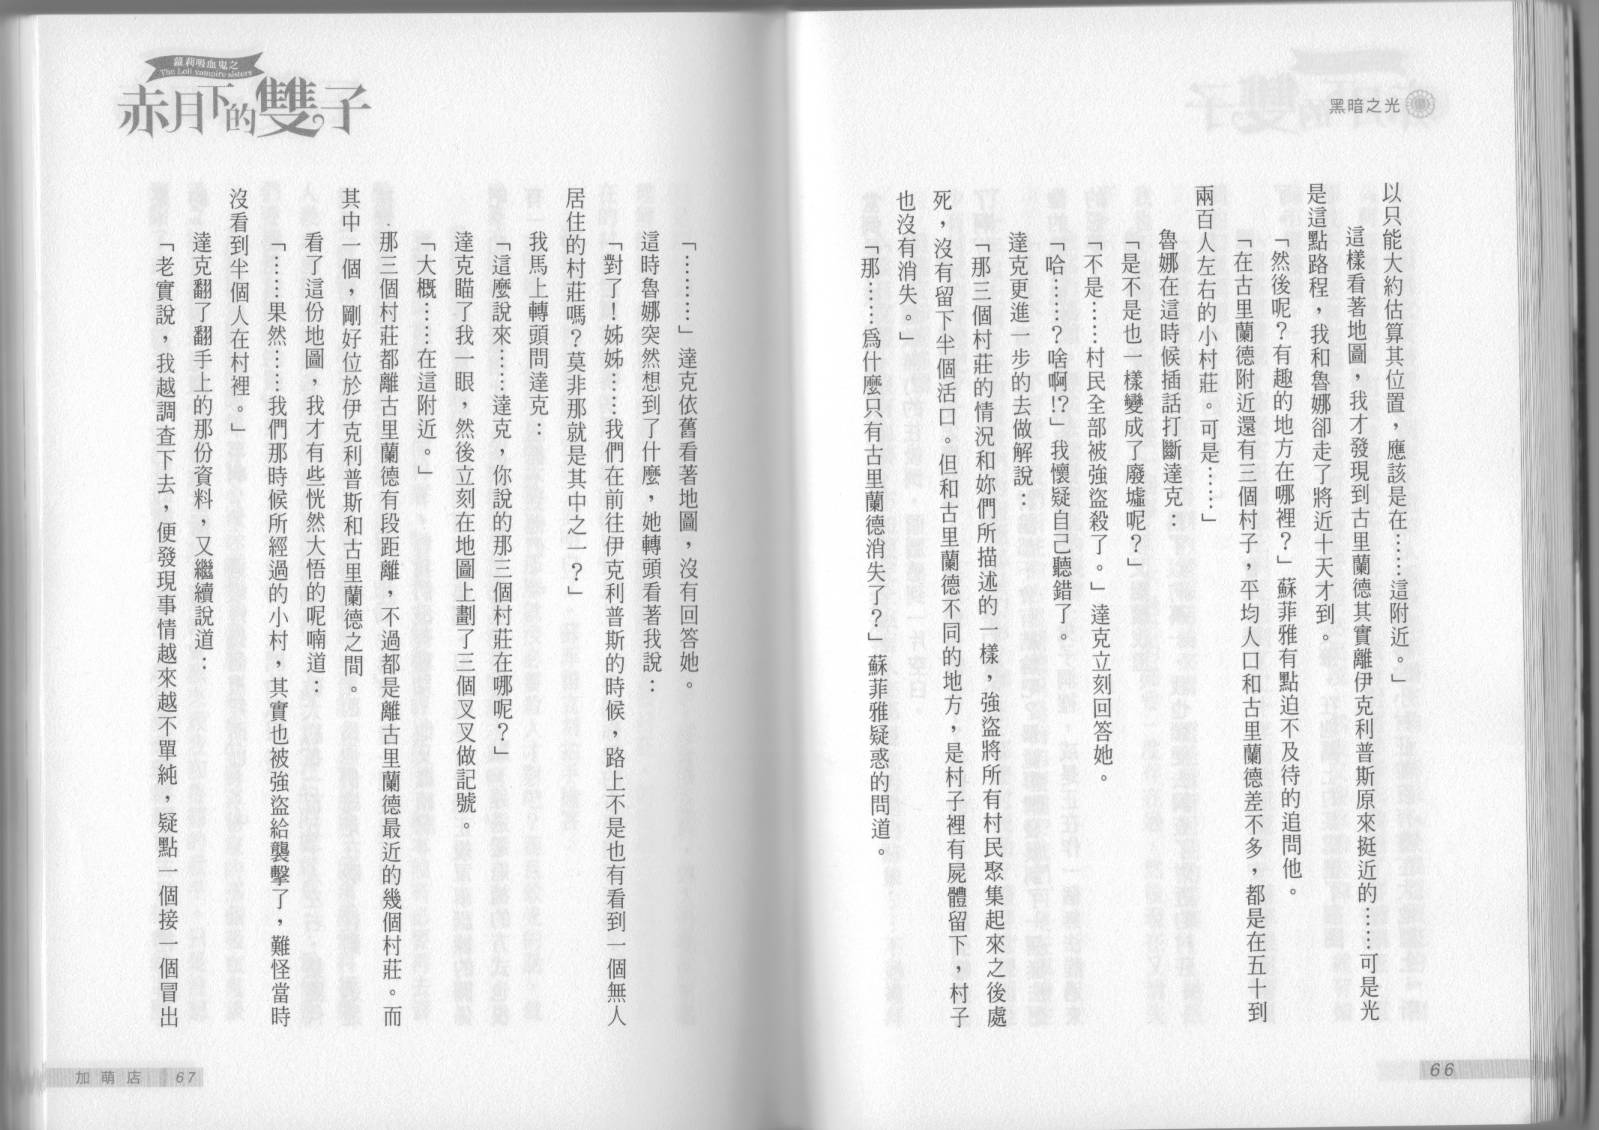 黑暗之光
以只能大約估算其位置，應該是在……這附近。」
這樣看著地圖，我才發現到古里蘭德其實離伊克利普斯原來挺近的……可是光
是這點路程，我和魯娜卻走了將近十天才到。
「然後呢？有趣的地方在哪裡？」蘇菲雅有點迫不及待的追問他。
「在古里蘭德附近還有三個村子，平均人口和古里蘭德差不多，都是在五十到
兩百人左右的小村莊。可是……」
魯娜在這時候插話打斷達克：
「是不是也一樣變成了廢墟呢？」
「不是……村民全部被強盜殺了。」達克立刻回答她。
「哈……？啥啊!?」我懷疑自己聽錯了。
達克更進一步的去做解說：
「那三個村莊的情況和妳們所描述的一樣，強盜將所有村民聚集起來之後處
死，沒有留下半個活口。但和古里蘭德不同的地方，是村子裡有屍體留下，村子
也沒有消失。」
「那……為什麼只有古里蘭德消失了？」蘇菲雅疑惑的問道。
66
蘿莉吸血鬼之
The Loli vampire sisters
赤月下的雙子
「………」達克依舊看著地圖，沒有回答她。
這時魯娜突然想到了什麼，她轉頭看著我說：
「對了！姊姊……我們在前往伊克利普斯的時候，路上不是也有看到一個無人
居住的村莊嗎？莫非那就是其中之一？」
我馬上轉頭問達克：
「這麼說來……達克，你說的那三個村莊在哪呢？」
達克瞄了我一眼，然後立刻在地圖上劃了三個叉叉做記號。
「大概……在這附近。」
那三個村莊都離古里蘭德有段距離，不過都是離古里蘭德最近的幾個村莊。而
其中一個，剛好位於伊克利普斯和古里蘭德之間。
看了這份地圖，我才有些恍然大悟的呢喃道：
「……果然……我們那時候所經過的小村，其實也被強盜給襲擊了，難怪當時
沒看到半個人在村裡。」
達克翻了翻手上的那份資料，又繼續說道：
「老實說，我越調查下去，便發現事情越來越不單純，疑點一個接一個冒出
加萌店 67